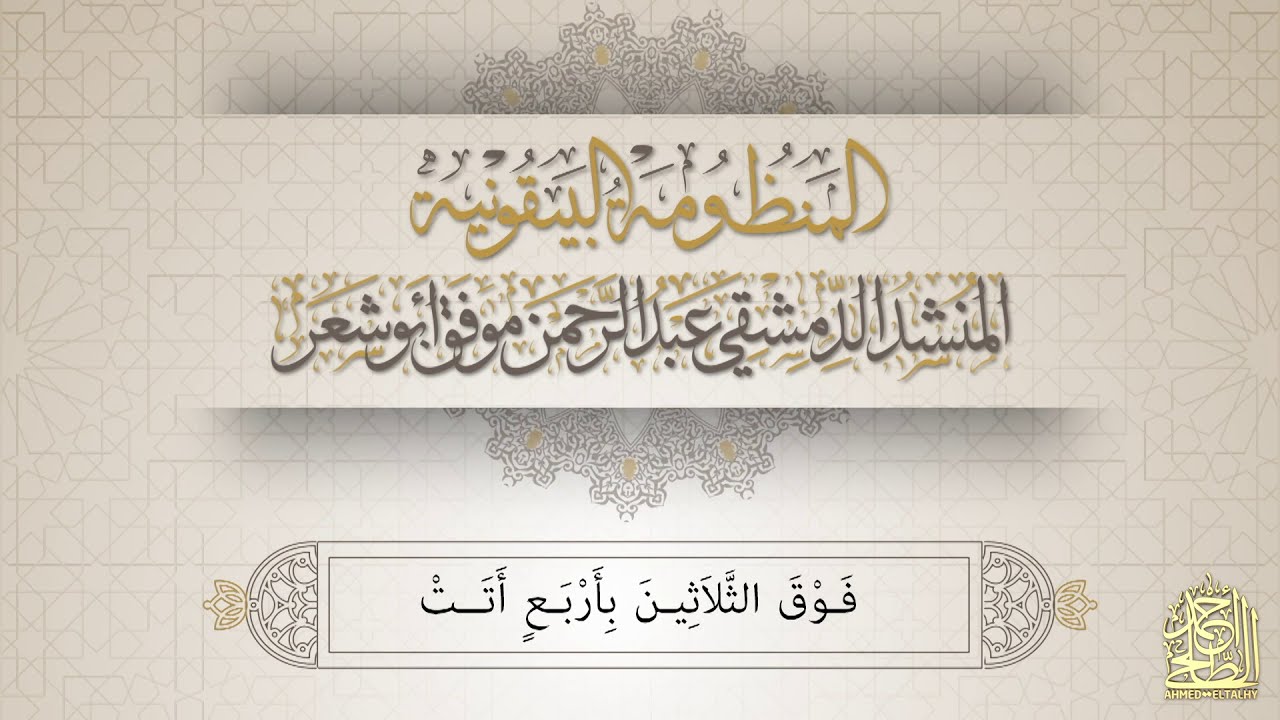 المَنظُومَةُ البَيقُونِيَة
المُنشِدُ الدِّمَشقِي عَبدُ الرَّحمَن مُوفق أبو شعَر
فَوْقَ الثَّلاَثِينَ بِأَرْبَعٍ أَتَتْ
أحمد الطلحي
AHMED ELTALHY